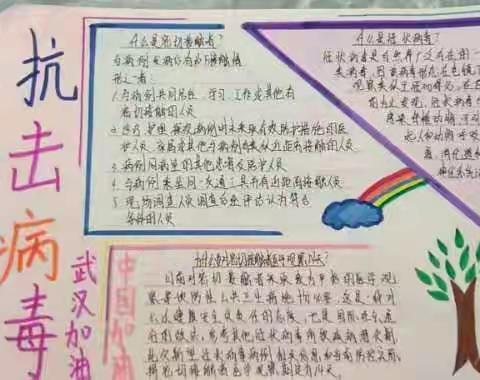 抗击病毒
武汉加油
中国加油
什么是密切接触者?
与病例发病后有如下接触情
形之一者:
1.与病例共同居住、学习、工作或其他有
密切接触的人员
2.诊疗、护理、探视病例时未采取有效防护措施的医
护人员、家属或其他与病例有类似近距离接触的人员
3.病例同病室的其他患者及陪护人员
4.与病例乘坐同一交通工具并有近距离接触人员
5.现场调查人员调查后经评估认为符合
条件的人员
什么是冠状病毒?
冠状病毒是自然界广泛存在的一
类病毒,因
为什么要对密切接触者医学观察14天?
目前对密切接触者采取较为严格的医学观
察等预防性公共卫生措施十分必要,这是一种对
公众健康安全负责任的态度,也是国际社会通
行的做法。参考其他冠状病毒所致疾病潜伏期
此次新型冠状病毒病例相关信息和当前防控实际,
将密切接触者医学观察期定为14天。